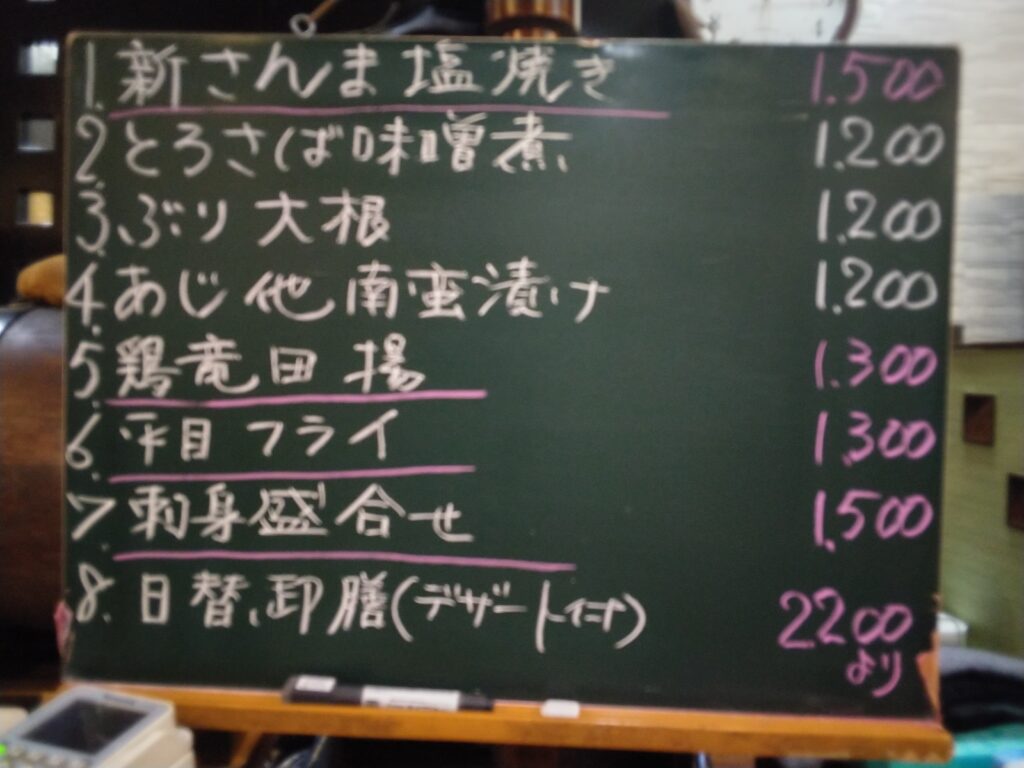 1. 新さんま塩焼き 1.500
2. とろさば味噌煮 1.200
3. ぶり大根 1.200
4. あじ他南蛮漬け 1.200
5. 鶏竜田揚 1.300
6. 平目フライ 1.300
7. 刺身盛合せ 1.500
8. 日替、御膳(デザート付) 2200
より